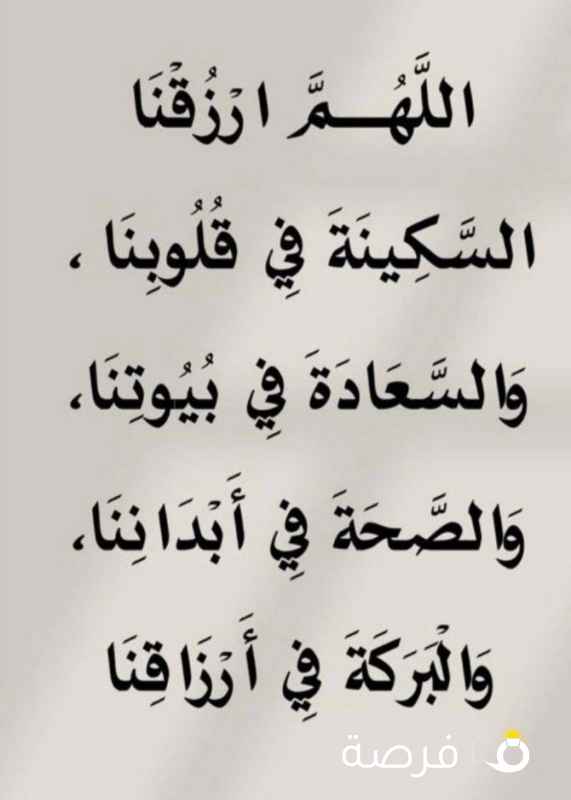 اللَّهُـــمَّ ارْزُقْنَا
السَّكِينَةَ فِي قُلُوبِنَا ،
وَالسَّعَادَةَ فِي بُيُوتِنَا،
وَالصَّحَةَ فِي أَبْدَانِنَا،
وَالْبَرَكَةَ فِي أَرْزَاقِنَا
فرصة